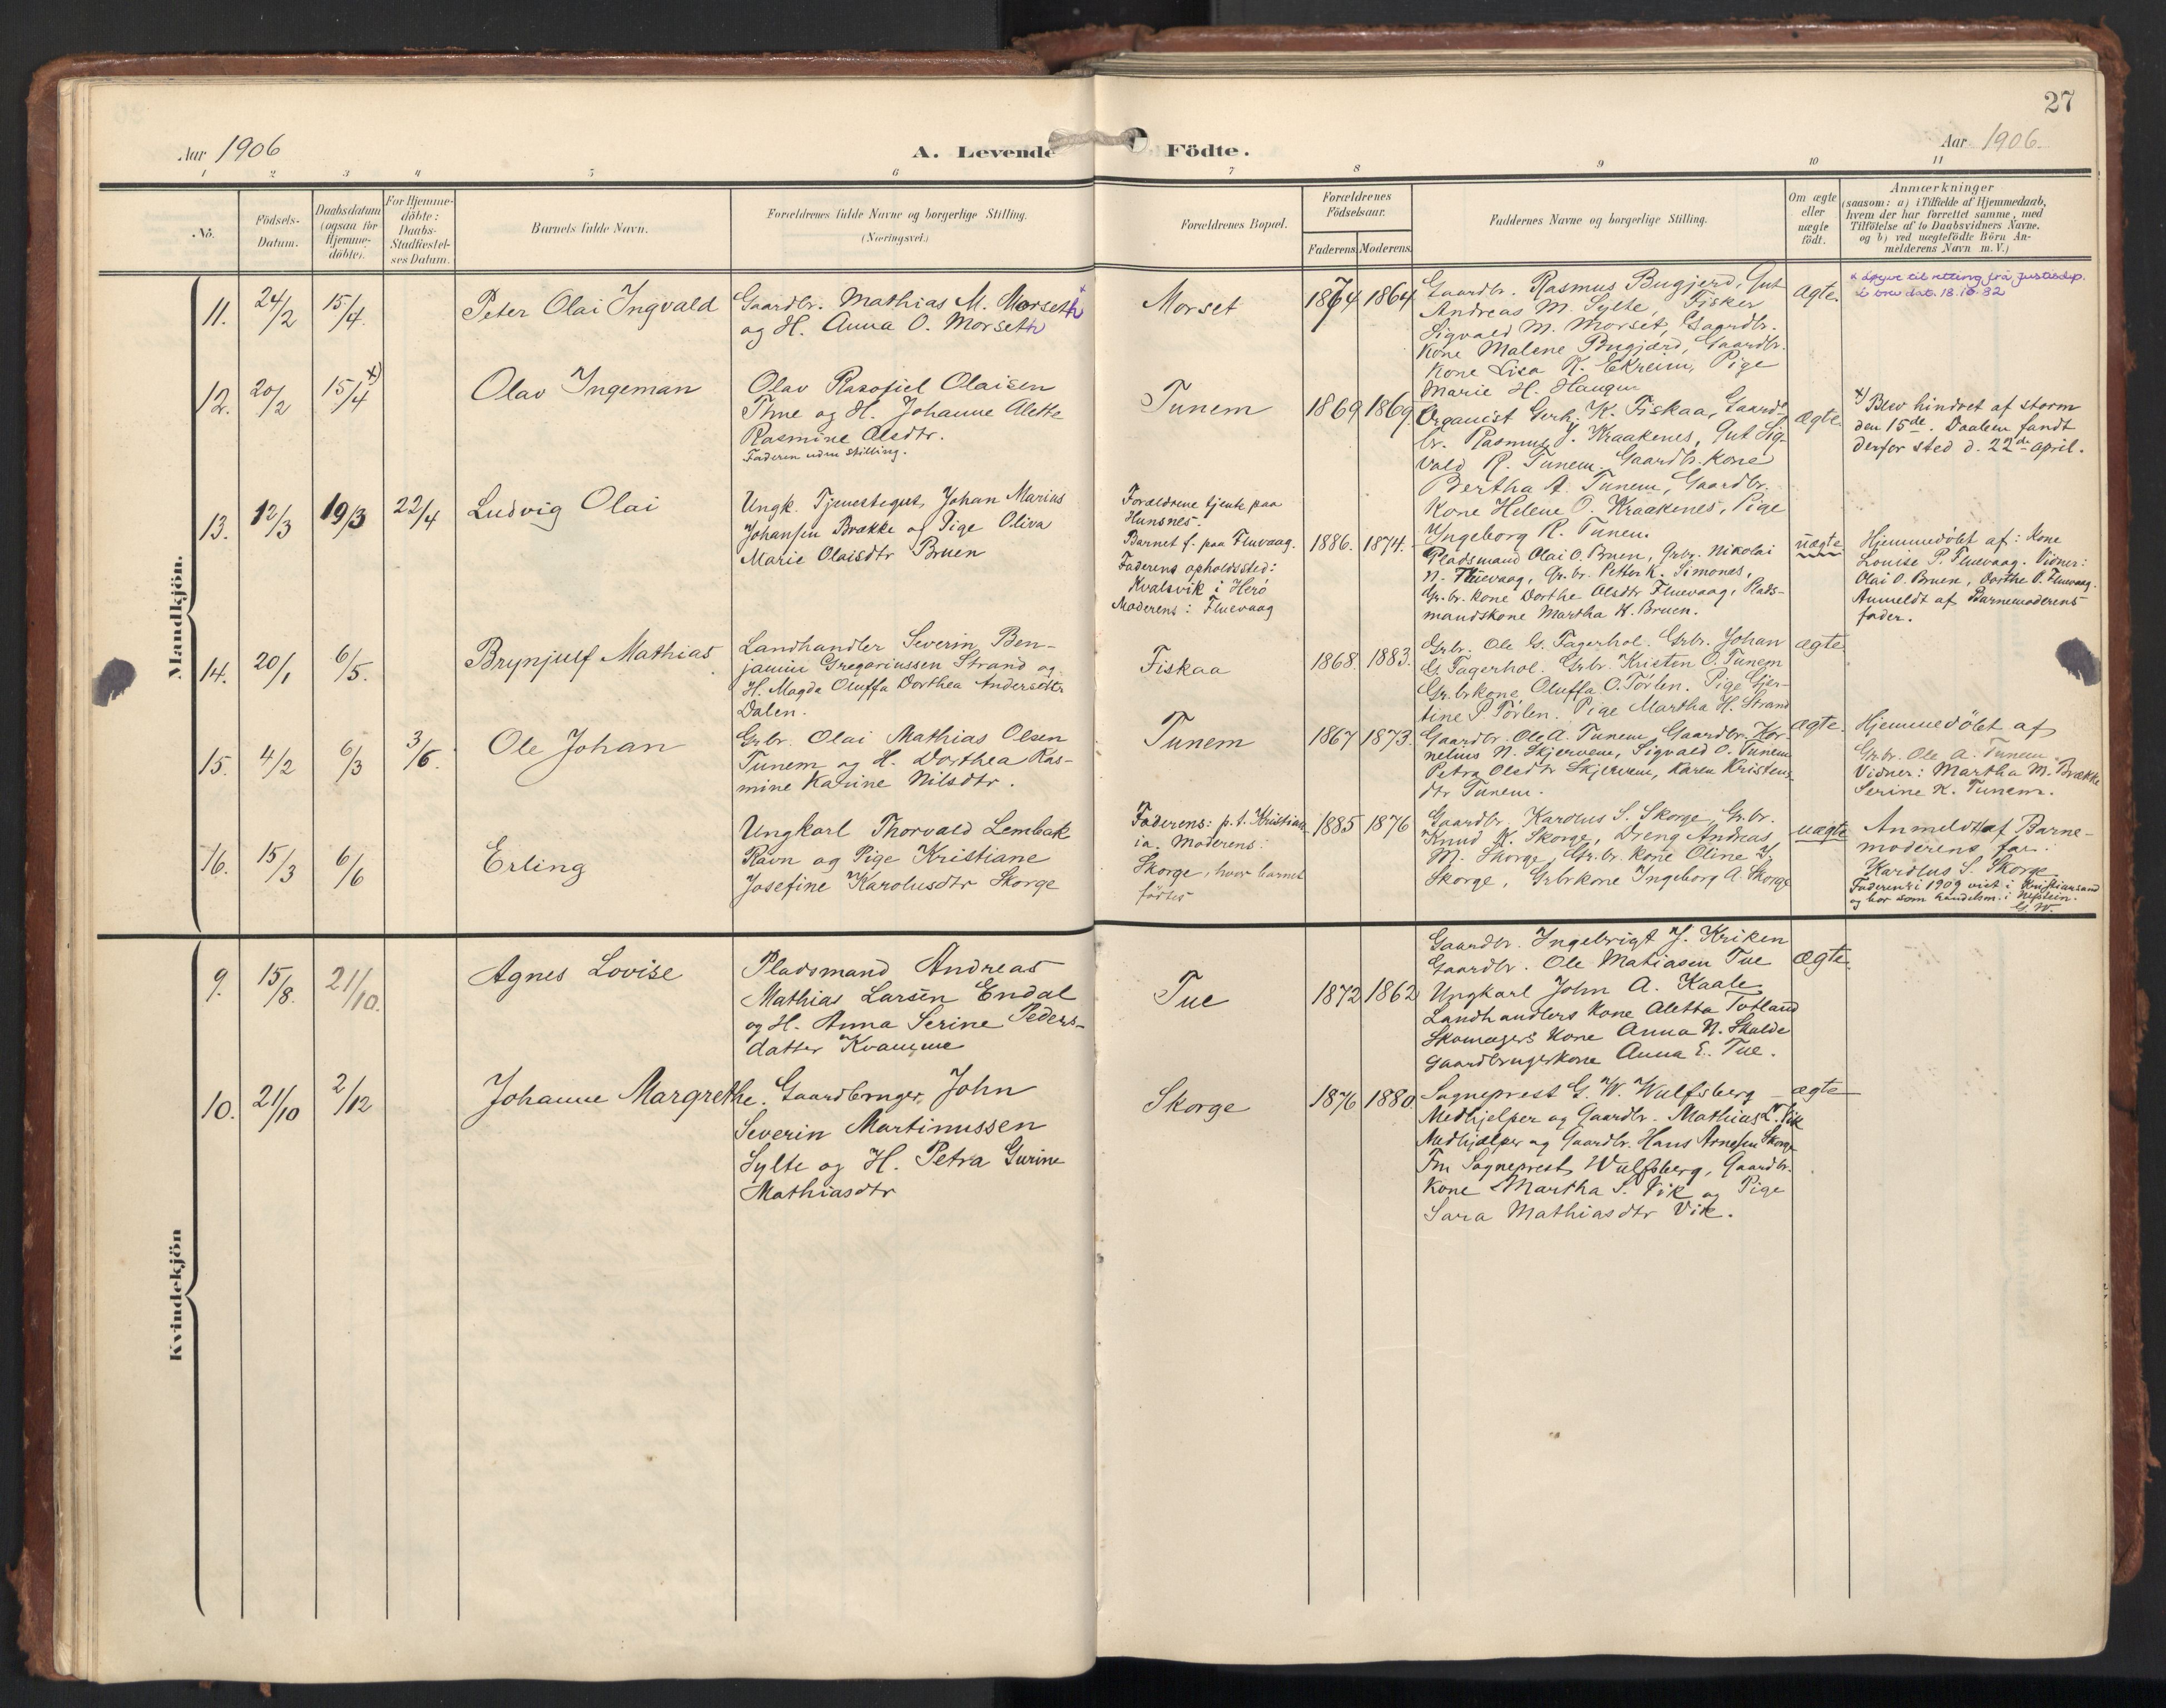 27
Aar 1906
A. Levende Födte.
Aar 1906.
1 2 3 4 5 6 7 8 9 10 11
No.
Födsels-Datum.
Daabsdatum (ogsaa for Hjemme-döbte).
For Hjemme-döbte: Daabs-Stadfæstel-ses Datum.
Barnets fulde Navn.
Forældrenes fulde Navne og borgerlige Stilling.
(Næringsvei.)
Forældrenes Bopæl.
Forældrenes Födselsaar.
Faderens. Moderens.
Faddernes Navne og borgerlige Stilling.
Om ægte eller uægte födt.
Anmærkninger
(saasom: a) i Tilfælde af Hjemmedaab,
hvem der har forrettet samme, med
Tilföielse af to Daabsvidners Navne.
og b) ved uægtefödte Börn An-
melderens Navn m. V.)
Mandkjön.
11. 24/2 15/4. Peter Olai Ingvald
Gaardbr. Mathias M. Morseth x
og H. Anna O. Morseth
Morset
1874 1864
Gaardbr. Rasmus Bugjerd, Gut
Andreas M. Sylte, Fisker
Sigvald M. Morset, Gaardbr.
Kone Malene Bugjærd, Gaardbr.
Kone Lisa K. Ekreim, Pige
Marie H. Haugen
Ægte.
x Løyve til retting frå Justisdep.
i brev dat. 18.10.82
12. 20/2 15/4 x) Olav Ingeman
Olav Rasofiel Olaisen
Thue og H. Johanne Alette
Rasmine Olsdtr.
Faderen uden Stilling.
Tunem
1869 1869.
Organist Gerh. K. Fiskaa, Gaard-
br. Rasmus J. Kraakenes, Gut Sig-
vald R. Tunem Gaardbr. Kone
Bertha A. Tunem, Gaardbr.
Kone Helene O. Kraakenes, Pige
Ingeborg R. Tunem.
Ægte.
x) Blev hindret af storm
den 15de. Daaben fandt
derfor sted d. 22de april.
13. 12/3 19/3 22/4 Ludvig Olai
Ungk. Tjenestegut, Johan Marius
Johansen Brække og Pige Oliva
Marie Olaisdtr Bruen
Forældrene tjente paa
Hunsnes.
Barnet f. paa Fluevaag.
Faderens opholdssted:
Kvalsvik i Herö
Moderens: Fluevaag
1886. 1874.
Pladsmand Olai O. Bruen, Grbr. Nikolai
N. Fluevaag, Gr.br. Petter K. Simones,
Gr.br. kone Dorthe Olsdtr Fluevaag, Plads-
mandskone Martha H. Bruen.
uægte
Hjemmedöbt af: Kone
Louise P. Fluevaag. Vidner:
Olai O. Bruen, Dorthe O. Fluevaag.
Anmeldt af Barnemoderens
fader.
14. 20/1 6/5. Brynjulf Mathias
Landhandler Severin Ben-
jamin Gregoriussen Strand og
H. Magda Oluffa Dorthea Andersdtr
Dalen.
Fiskaa
1868. 1883.
Grbr. Ole G. Fagerhol. Grbr. Johan
G. Fagerhol. Grbr. Kristen O. Tunem
Gr.br.kone Oluffa O. Törlen. Pige Gjer-
tine P. Törlen. Pige Martha H. Strand
ægte.
15. 4/2 6/3 3/6. Ole Johan
Grbr. Olai Mathias Olsen
Tunem og H. Dorthea Ras-
mine Karine Nilsdtr.
Tunem
1867 1873.
Gaardbr. Ole A. Tunem, Gaardbr. Kor-
nelius N. Skjervem, Sigvald O. Tunem
Petra Olsdtr Skjervem, Karen Kristens-
dtr Tunem.
Ægte.
Hjemmedöbt af
Gr.br. Ole A. Tunem.
Vidner: Martha M. Brække
Serine K. Tunem.
16. 15/3 6/6 Erling
Ungkarl Thorvald Lembak
Ravn og Pige Kristiane
Josefine Karolusdtr Skorge
Faderens: p.t. Kristian-
ia. Moderens:
Skorge, hvor barnet
födtes
1885 1876
Gaardbr. Karolus S. Skorge, Gr.br.
Knud K. Skorge, Dreng Andreas
M. Skorge, Gr.br. kone Oline
Skorge, Grbrkone Ingeborg A. Skorge
uægte
Anmeldt af Barne-
moderens far:
Karolus S. Skorge
Faderen i 1909 viet i Kristiansand
og bor som handelsm. i
G. W.
Kvindekjön
9. 15/8. 21/10. Agnes Lovise
Pladsmand Andreas
Mathias Larsen Endal
og H. Anna Serine Peders-
datter Kvamme
Tue
1872 1862
Gaardbr. Ingebrigt J. Kriken
Gaardbr. Ole Matiasen Tue
Ungkarl John A. Kaale
Landhandlers Kone Aletta Totland
Skomagers Kone Anna N. Skulde
Gaardbrugerkone Anna E. Tue.
Ægte.
10. 21/10 2/12 Johanne Margrethe.
Gaardbruger, John
Severin Martinussen
Sylte og H. Petra Gurine
Mathiasdtr
Skorge
1876 1880.
Sogneprest G. W. Wulfsberg
Medhjelper og Gaardbr. Mathias L. Vik
Medhjælper og Gaardbr. Hans Arnesen Skorge
Fru Sogneprest Wulfsberg, Gaardbr.
Kone Martha S. Vik og Pige
Sara Mathiasdtr Vik.
ægte